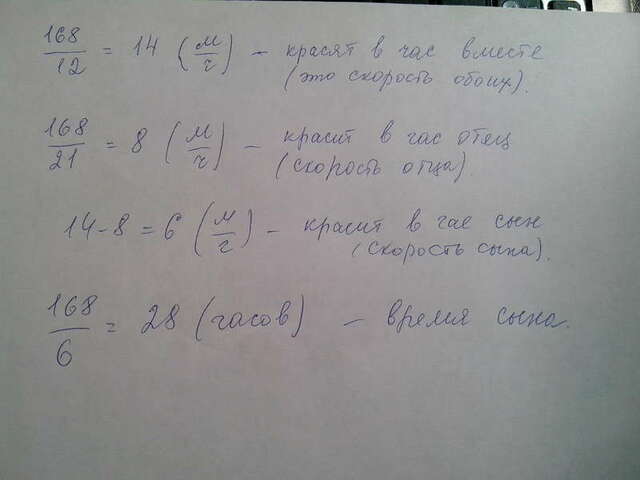 168/12 = 14 (м/ч) – красят в час вместе
(это скорость обоих).
168/21 = 8 (м/ч) – красит в час отец
(скорость отца).
14-8=6 (м/ч) – красит в час сын
(скорость сына).
168/6 = 28 (часов) – время сына.